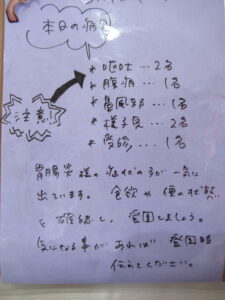 本日の病気
注意
* 嘔吐…2名
* 腹痛…1名
* 鼻風邪…1名
* 様子見…2名
* 受診…1名
胃腸炎様の症状の子が一気に
出ています。食欲や便の状態
を確認し、登園しましょう。
気になる事があれば登園時
伝えてください。